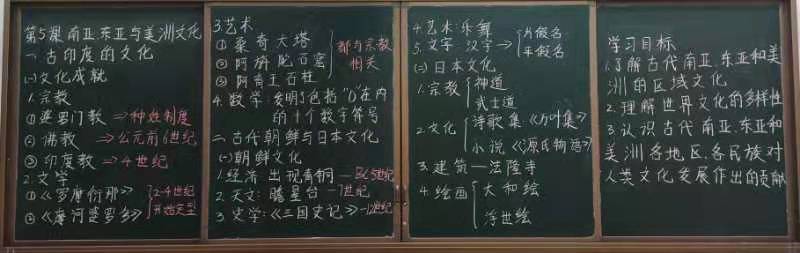 第5课 南亚、东亚与美洲文化
一、古印度的文化
(一)文化成就
1.宗教
① 婆罗门教 ⇒种姓制度
② 佛教 ⇒公元前6世纪
③ 印度教 ⇒4世纪
2.文学
①《罗摩衍那》
②《摩诃婆罗多》
2-4世纪
开始定型
3.艺术
① 桑奇大塔
② 阿旃陀石窟
③ 阿育王石柱
都与宗教
相关
4.数字:发明了包括"0"在内
的十个数字符号
二、古代朝鲜与日本文化
(一)朝鲜文化
1.经济:出现青铜
2.天文:瞻星台—7世纪
3.史学:《三国史记》—12世纪
4.艺术:乐舞
5.文字 汉字→片假名
平假名
(二)日本文化
1.宗教 神道
武士道
2.文化 诗歌集《万叶集》
小说《源氏物语》
3.建筑—法隆寺
4.绘画 大和绘
浮世绘
学习目标
1.了解古代南亚、东亚和美
洲的区域文化
2.理解世界文化的多样性
3.认识古代南亚、东亚和
美洲各地区、各民族对
人类文化发展作出的贡献